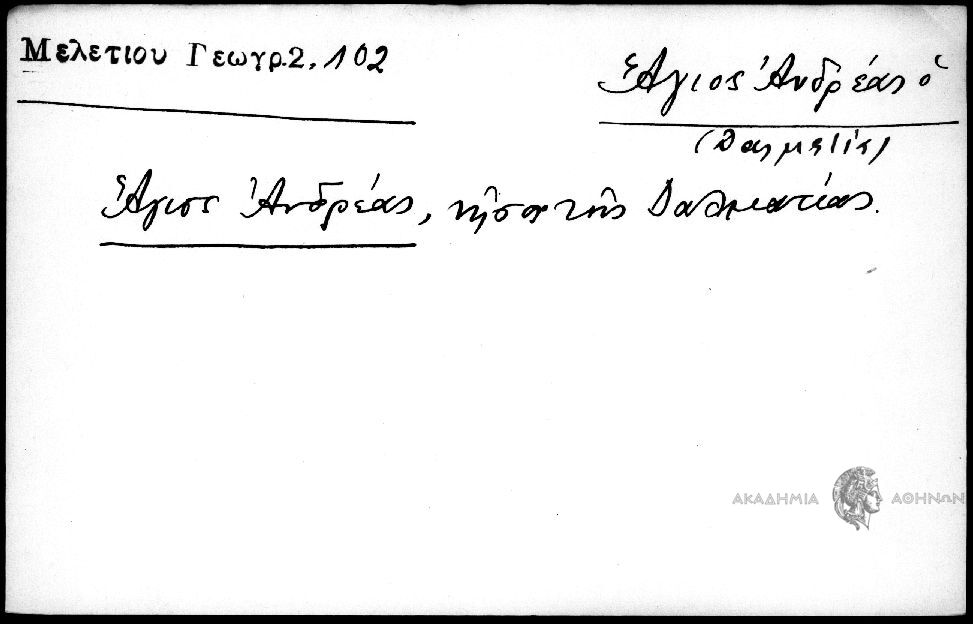 Μελετιου Γεωγρ.2, 102
Ἅγιος Ἀνδρέας ὁ
Ἅγιος Ἀνδρέας, νῆσος τῆς Δαλματίας.
ΑΚΑΔΗΜΙΑ ΑΘΗΝΩΝ